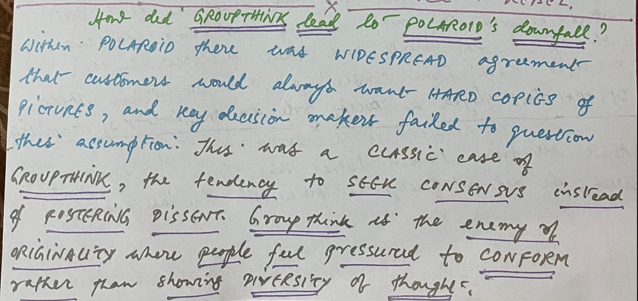 How did GROUPTHINK lead to POLAROID's downfall?
Within POLAROID there was WIDESPREAD agreement
that customers would always want HARD COPIES of
PICTURES, and key decision makers failed to question
this assumption. This was a CLASSIC case of
GROUPTHINK, the tendency to SEEK CONSENSUS instead
of FOSTERING DISSENT. Groupthink is the enemy of
ORIGINALITY where people feel pressured to CONFORM
rather than showing DIVERSITY of thought.